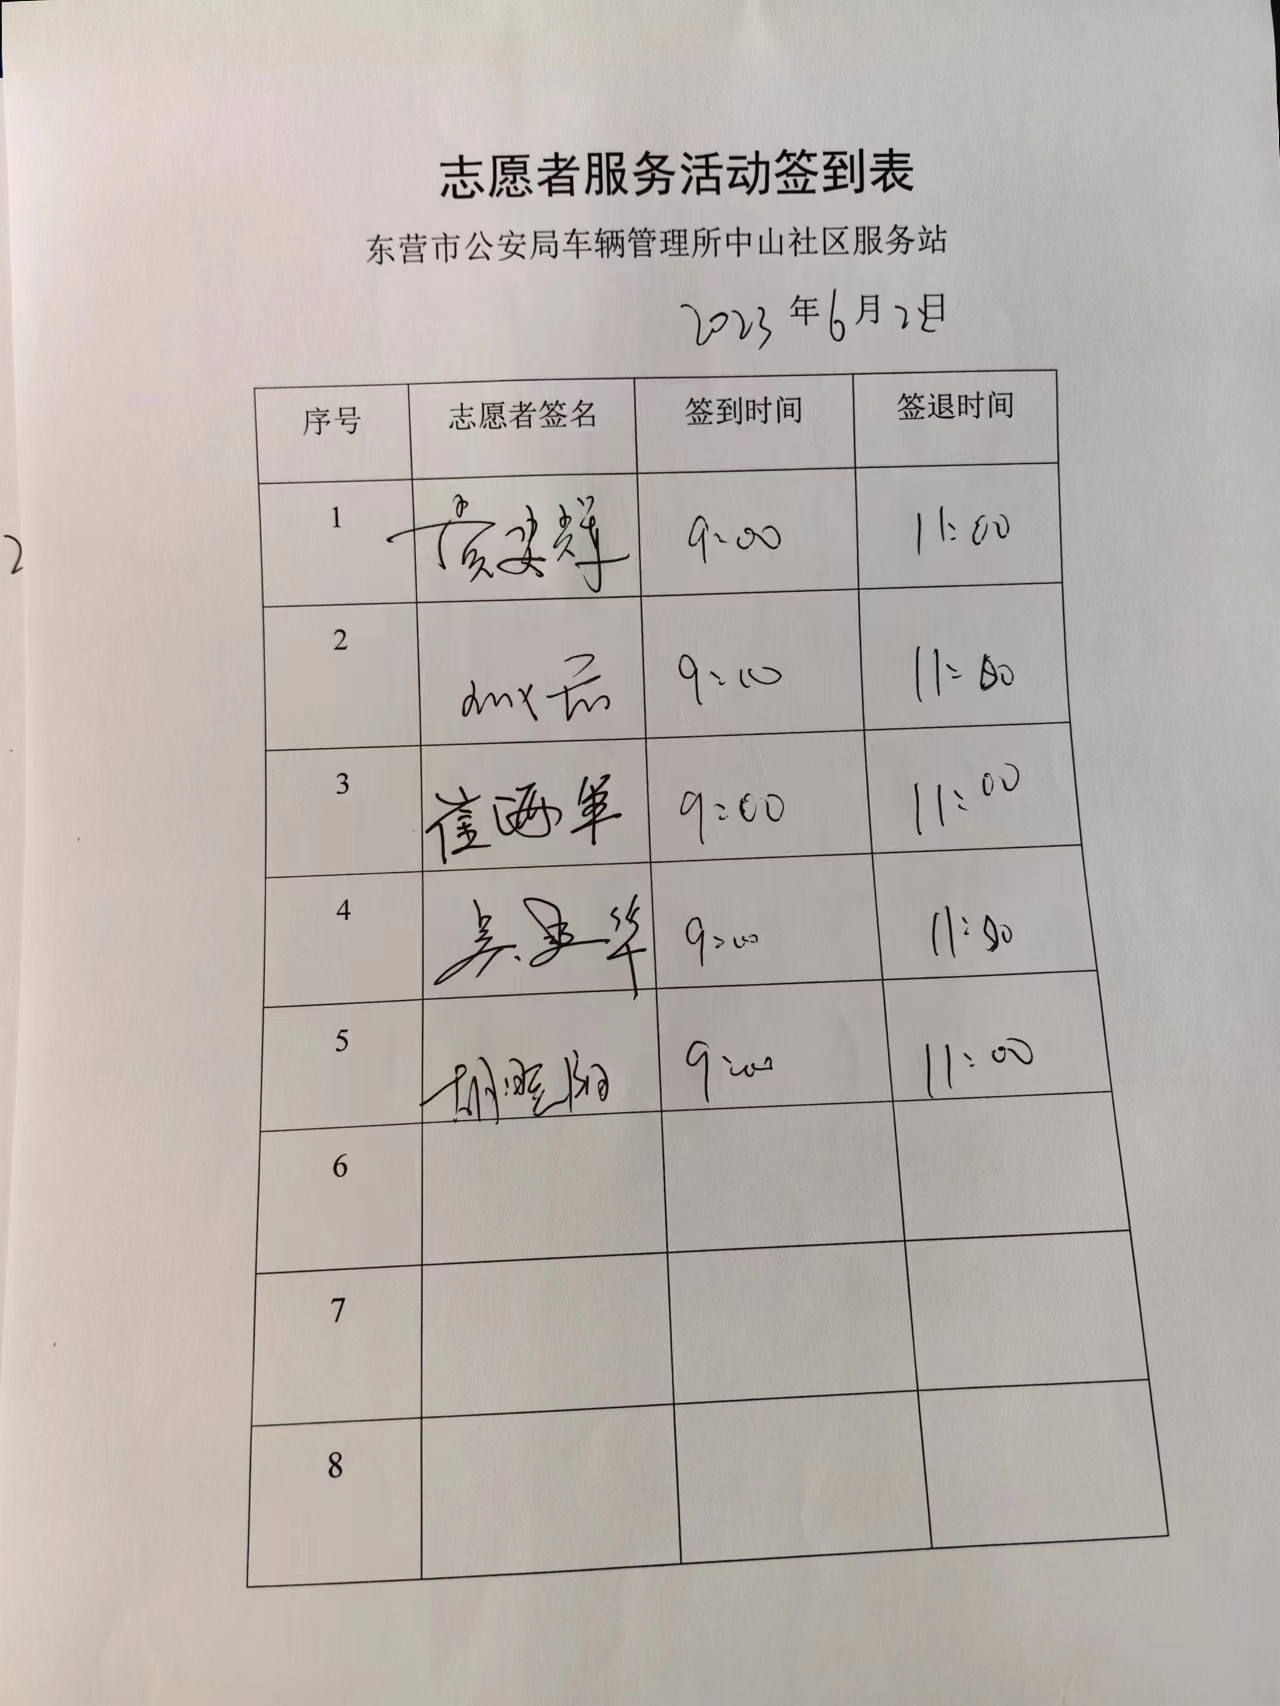 志愿者服务活动签到表
东营市公安局车辆管理所中山社区服务站
2023年6月2日
序号 志愿者签名 签到时间 签退时间
1 9:00 11:00
2 9:00 11:00
3 崔海军 9:00 11:00
4 吴 华 9:00 11:00
5 胡 阳 9:00 11:00
6
7
8